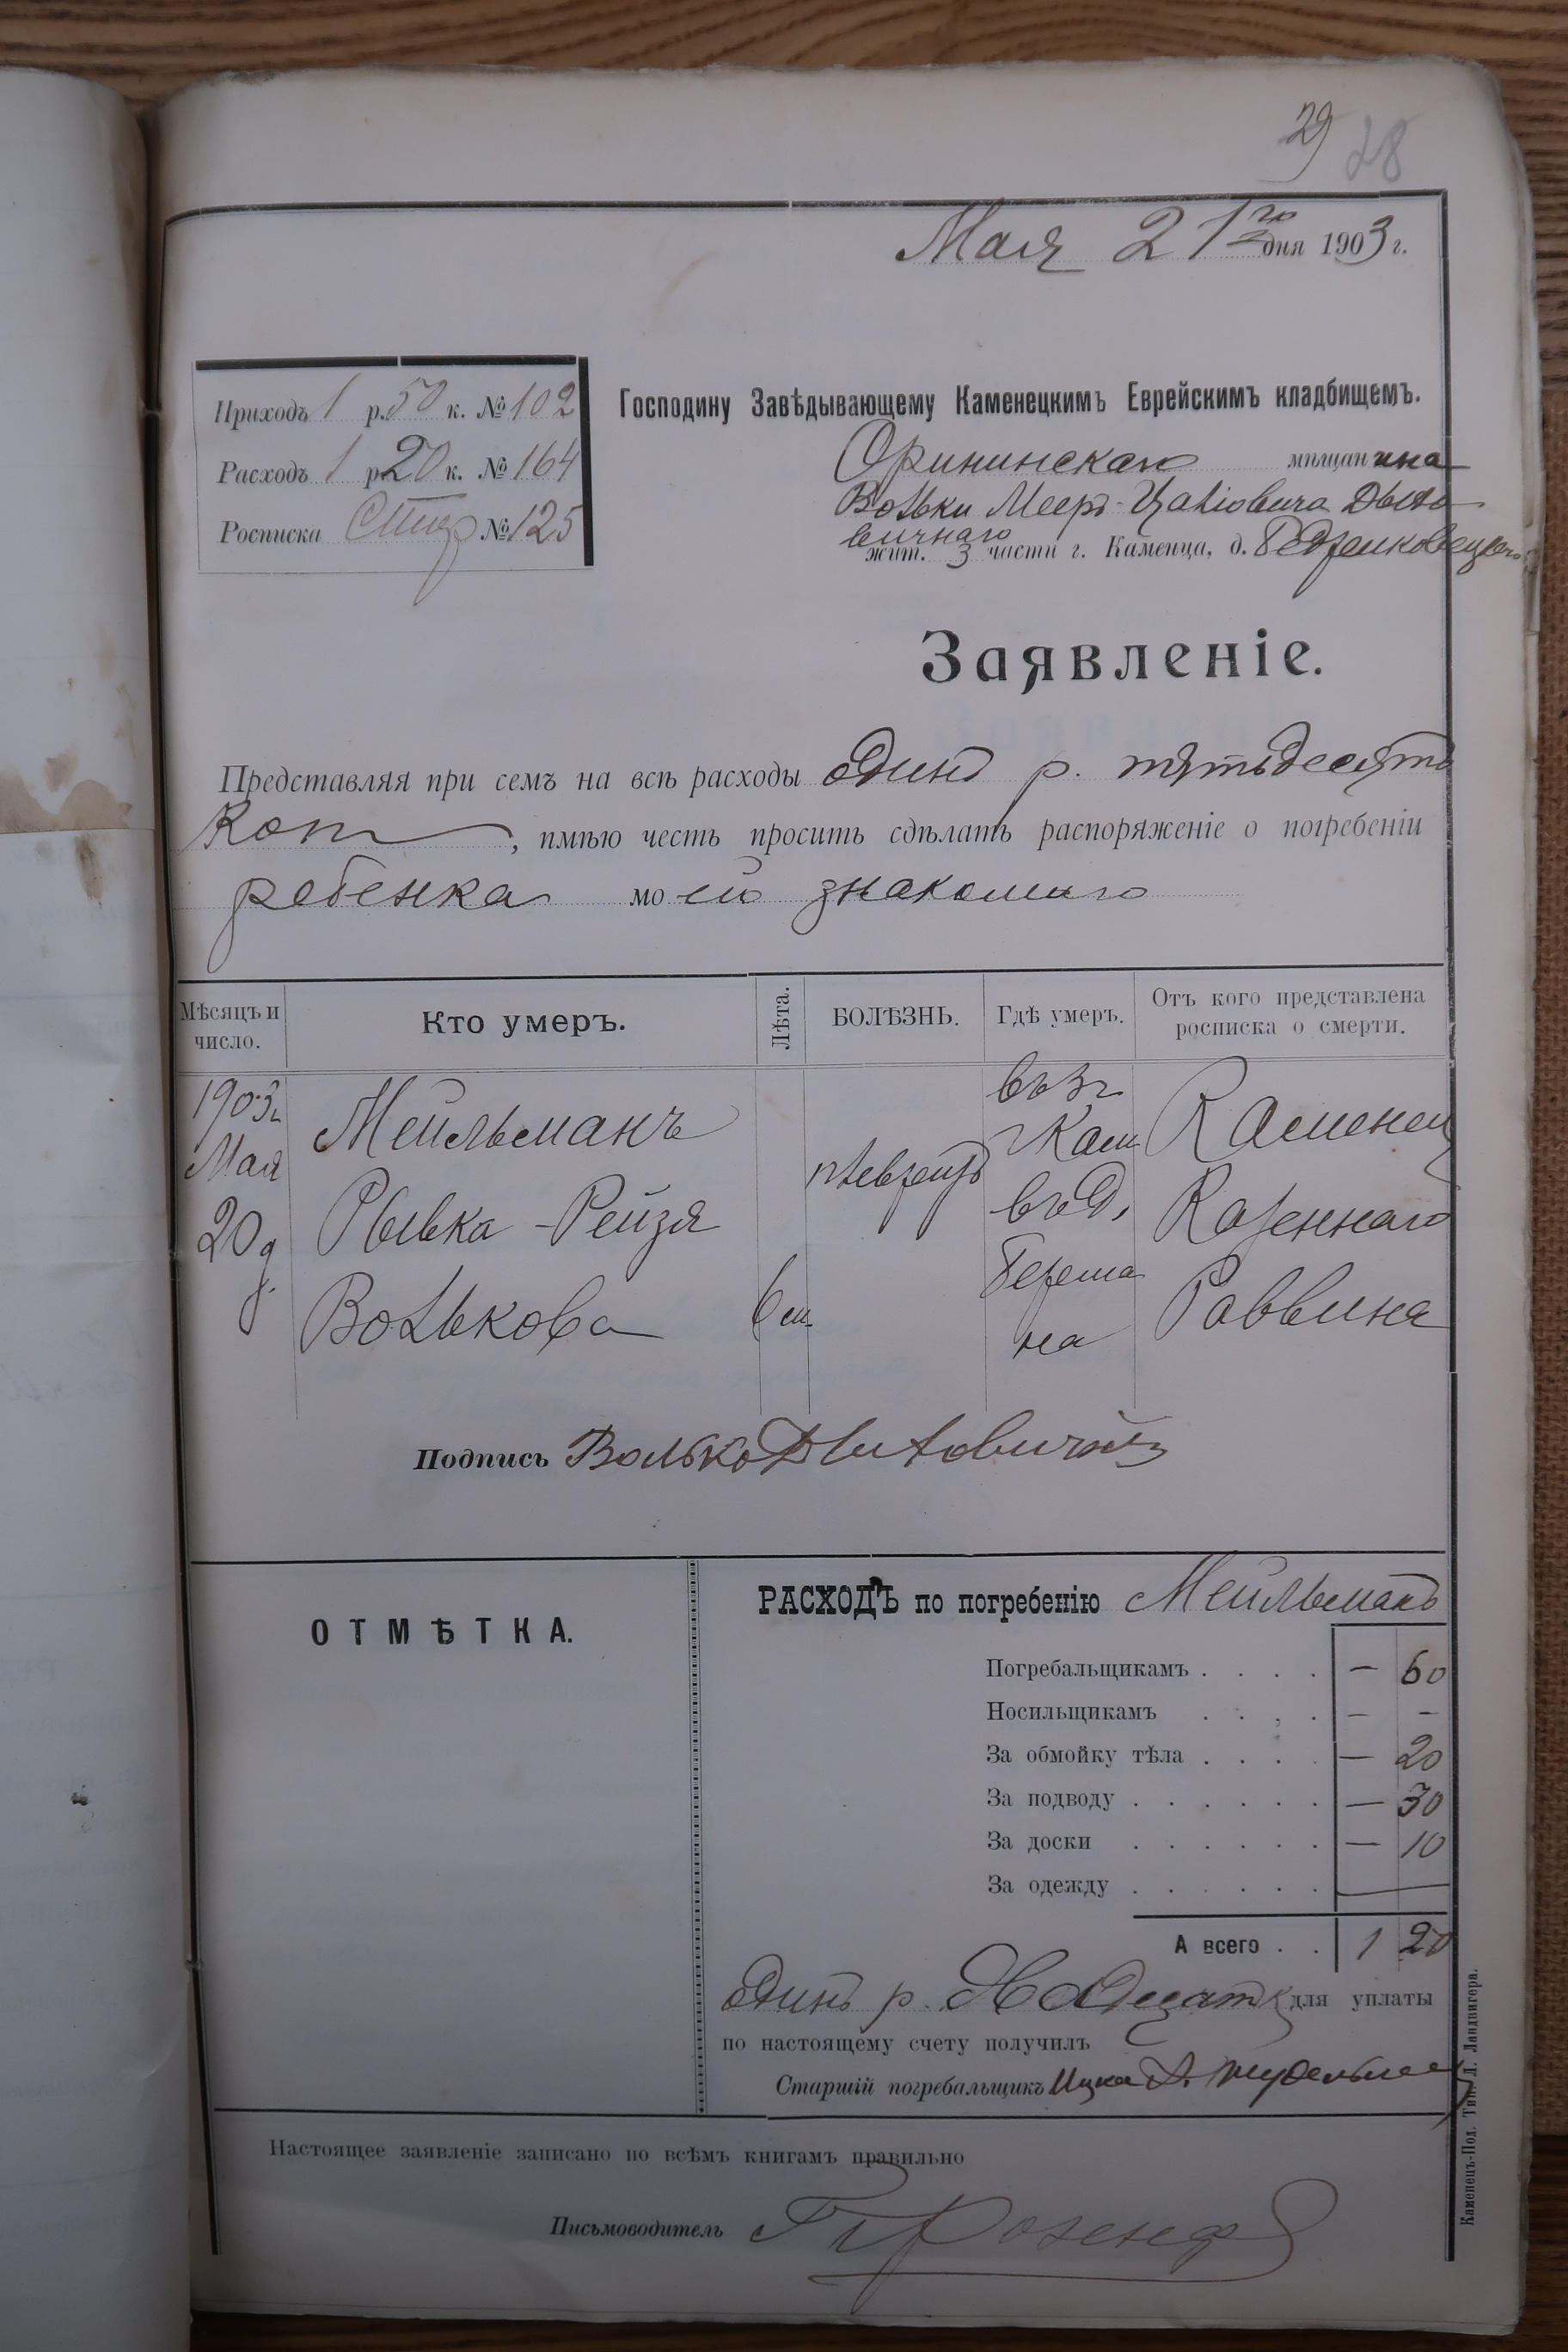 29 28
Мая 21го дня 1903 г.
Приходъ 1 р. 50 к. № 102
Расходъ 1 р. 20 к. № 164
Росписка № 125
Господину Завѣдывающему Каменецкимъ Еврейскимъ кладбищемъ.
Орининскаго мѣщанина
Вольки Меер-
вичнаго
жит. 3 части г. Каменца, д.
Заявленіе.
Представляя при семъ на всѣ расходы одинъ р. пятьдесятъ
Коп , имѣю честь просить сдѣлать распоряженіе о погребеніи
ребенка моего знакомаго
Мѣсяцъ и число. Кто умеръ. Лѣта. БОЛѢЗНЬ. Гдѣ умеръ. Отъ кого представлена росписка о смерти.
1903 г. Мейльманъ въ 3 ч.
Мая г Кам Каменец
20 д. Рывка-Рейзя плевритъ въ д. Казеннаго
Волькова 6 м. Раввина
Подпись Волько
ОТМѢТКА.
РАСХОДЪ по погребенію Мейльманъ
Погребальщикамъ . . . . — 60
Носильщикамъ . . . . — -
За обмойку тѣла . . . . — 20
За подводу . . . . . . — 30
За доски . . . . . . — 10
За одежду . . . . . . —
А всего . . 1 20
Одинъ р. для уплаты
по настоящему счету получилъ
Старшій погребальщикъ Ицка
Настоящее заявленіе записано по всѣмъ книгамъ правильно
Письмоводитель
Каменецъ-Под. Тип. Л. Ландвигера.